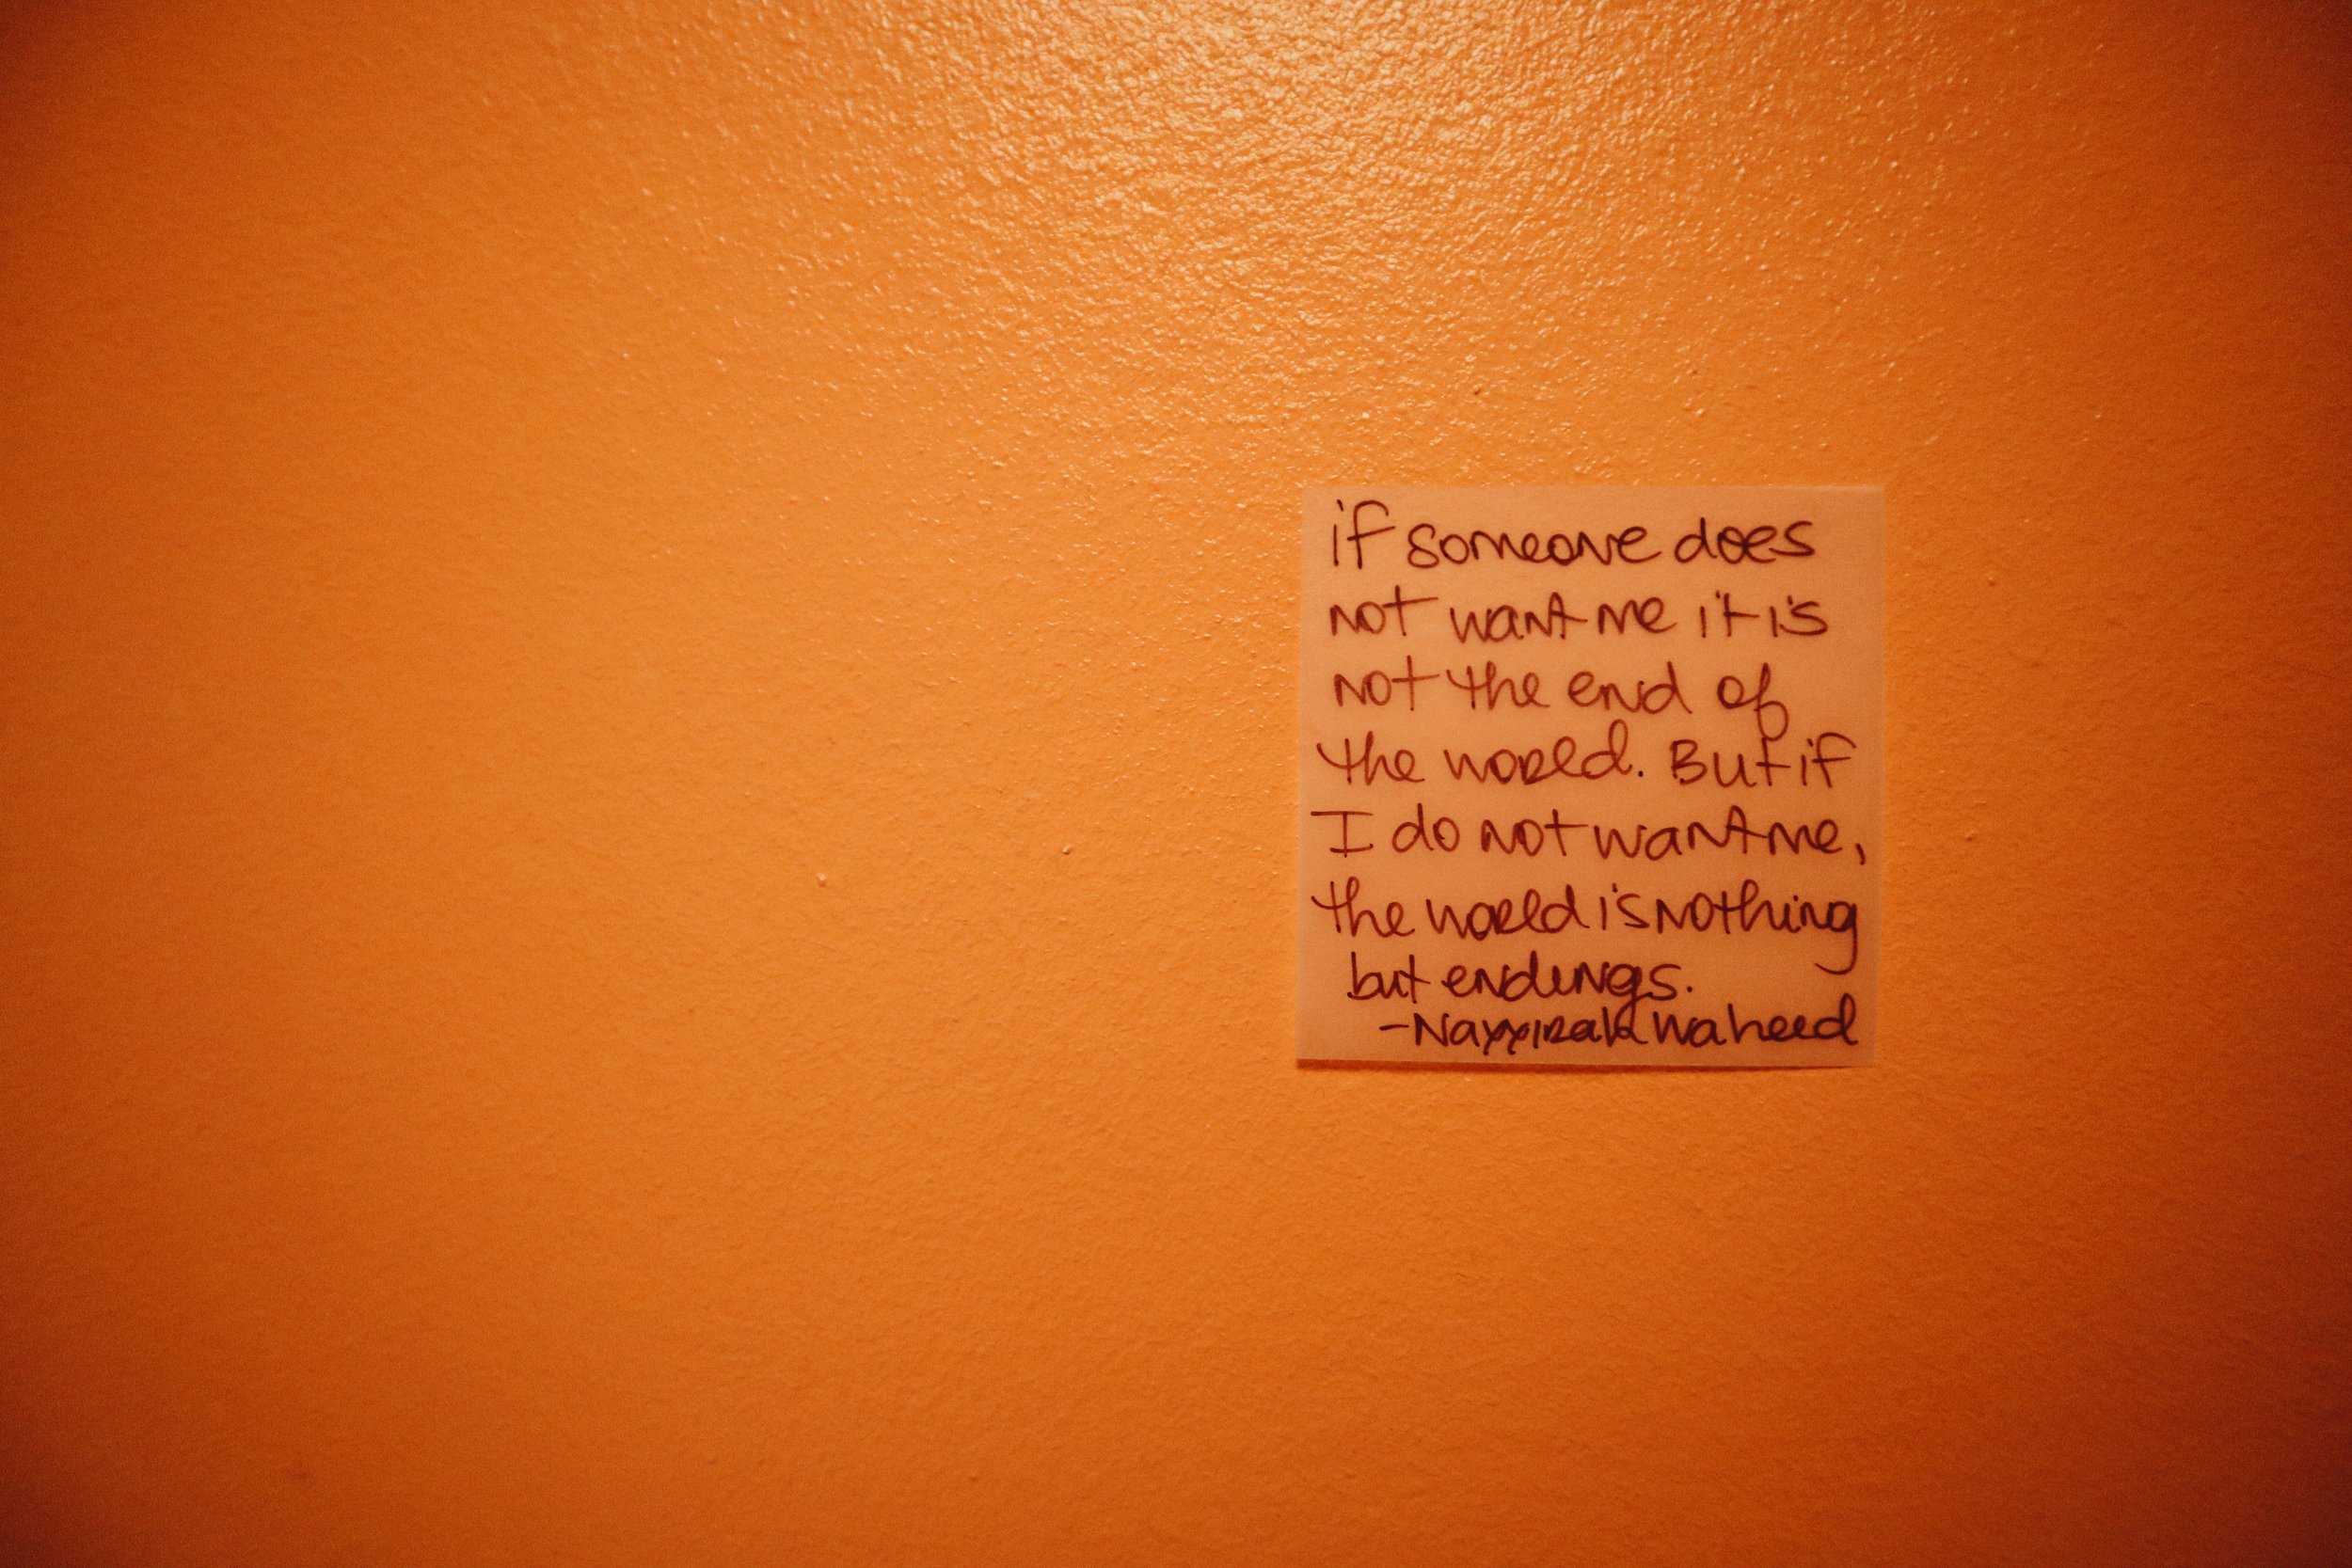 if someone does
not want me it is
not the end of
the world. But if
I do not want me,
the world is nothing
but endings.
-Nayyirah Waheed